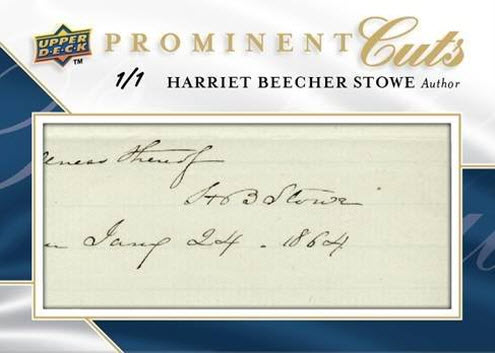 UPPER DECK TM PROMINENT Cuts
1/1 HARRIET BEECHER STOWE Author
thereof
H B Stowe
Jany 24 . 1864